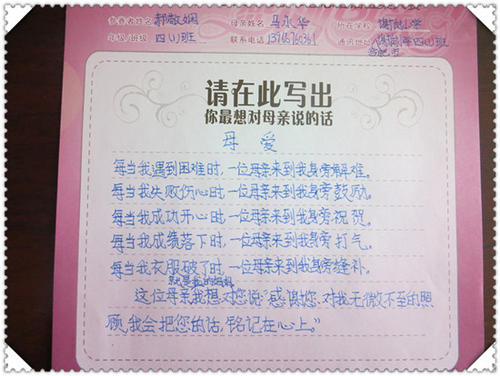 参赛者姓名 郝敬娴 母亲姓名 马永华 所在学校
年级/班级 四(1)班 联系电话 通讯地址
请在此写出
你最想对母亲说的话
母 爱
每当我遇到困难时,一位母亲来到我身旁解难。
每当我失败伤心时,一位母亲来到我身旁鼓励。
每当我成功开心时,一位母亲来到我身旁祝贺。
每当我成绩落下时,一位母亲来到我身旁打气。
每当我衣服破了时,一位母亲来到我身旁缝补。
就是我的妈妈
这位母亲我想对您说“感谢您,对我无微不至的照
顾,我会把您的话,铭记在心上。”